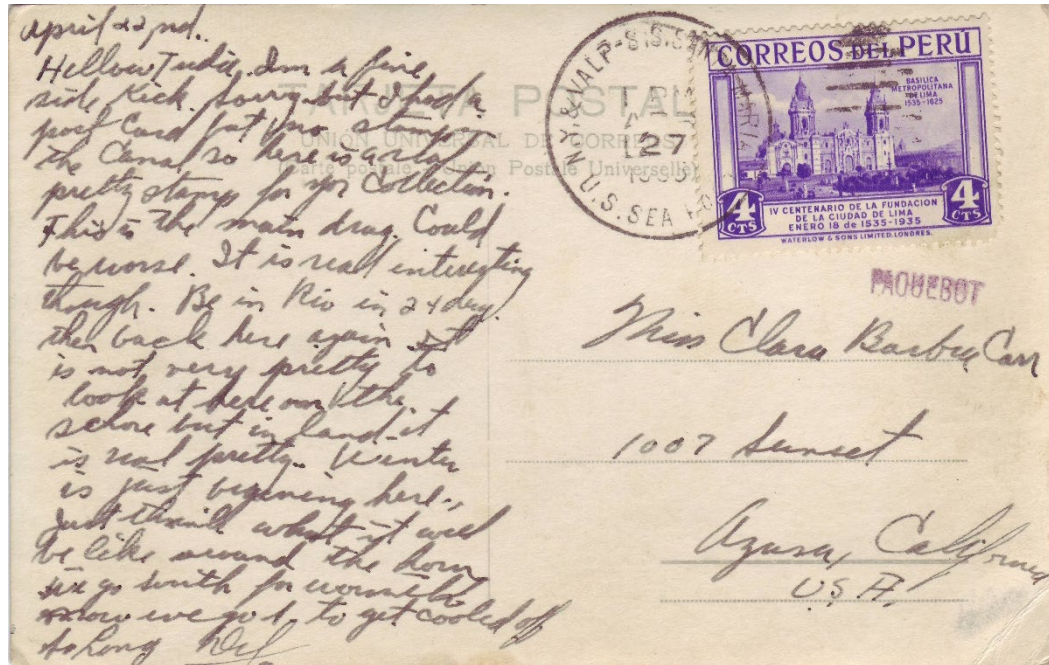 April 22nd.
Hellow Tudie. Im a fine
side Kick. Sorry but I had a
post Card but no stamp
the Canal so here is a
pretty stamp for yor Collection.
This is the main drag. Could
be worse. It is real interesting
though. Be in Rio in 24 day
then back here again It
is not very pretty to
look at here on the
schore but in land it
is real pretty. Winter
is just begining here.,
Just think what it will
be like around the horn
we go south for
now we go to get cooled off
So Long
TARJETA POSTAL
UNIÓN UNIVERSAL DE CORREOS
(Carte postale - Union Postale Universelle)
N.Y. & VALP - S.S. SANTA MARIA
27
U.S. SEA P.O.
CORREOS DEL PERÚ
BASILICA
METROPOLITANA
DE LIMA
1535-1625
4 CTS
IV CENTENARIO DE LA FUNDACION
DE LA CIUDAD DE LIMA
ENERO 18 de 1535-1935
4 CTS
WATERLOW & SONS LIMITED, LONDRES.
PAQUEBOT
Miss Clara Barbra Carr
1007 Sunset
Azusa, California
U.S.A.